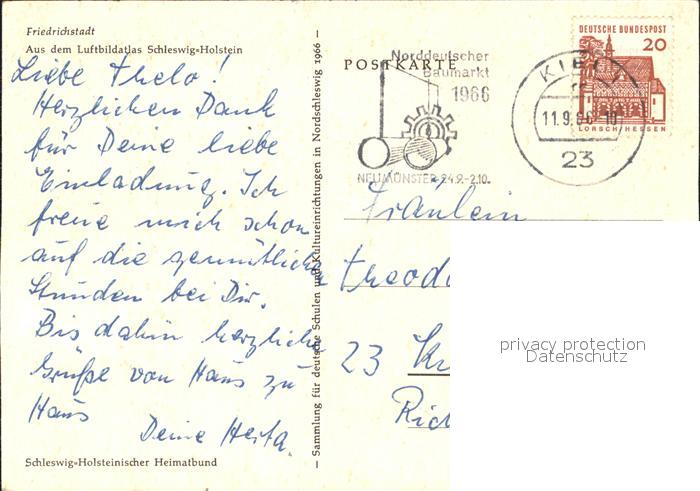 Friedrichstadt
Aus dem Luftbildatlas Schleswig-Holstein
Liebe Thelo!
Herzlichen Dank
für Deine liebe
Einladung. Ich
freue mich schon
auf die gemütliche
Stunden bei Dir.
Bis dahin herzliche
Grüße von Haus zu
Haus
Deine Herta.
Schleswig-Holsteinischer Heimatbund
— Sammlung für deutsche Schulen und Kultureinrichtungen in Nordschleswig 1966 —
POSTKARTE
Norddeutscher
Baumarkt
1966
NEUMÜNSTER 24.9.-2.10.
KIEL
11.9.66-10
23
DEUTSCHE BUNDESPOST
20
LORSCH/HESSEN
Fräulein
Theod
23 K
Ric
privacy protection
Datenschutz